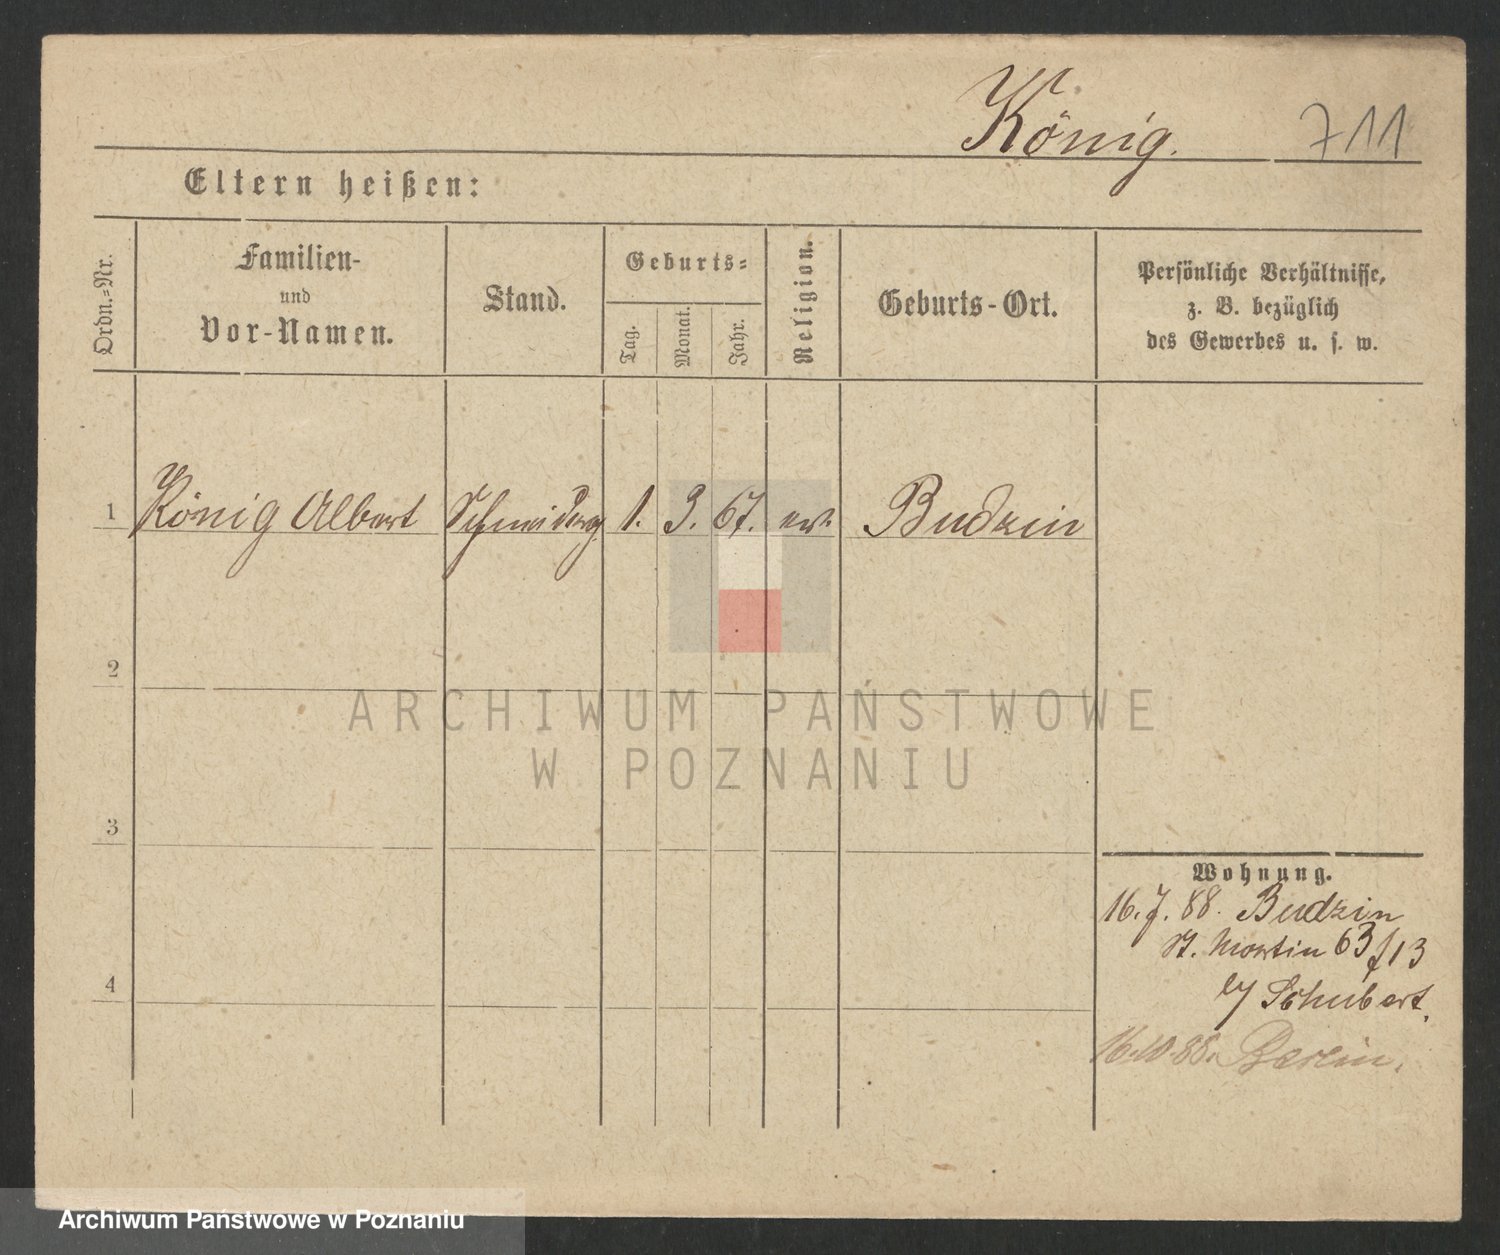 König. 711
Eltern heißen:
Ordn.-Nr.
Familien-
und
Vor-Namen.
Stand.
Geburts-
Tag.
Monat.
Jahr.
Religion.
Geburts-Ort.
Persönliche Verhältnisse,
z. B. bezüglich
des Gewerbes u. s. w.
1 König Albert 1. 3. 67. ev. Budzin
2
ARCHIWUM PAŃSTWOWE
W POZNANIU
3
Wohnung.
16. 7. 88. Budzin
St. Martin 63 / 13
b/ Schubert.
4
16.10.88. Berlin.
Archiwum Państwowe w Poznaniu